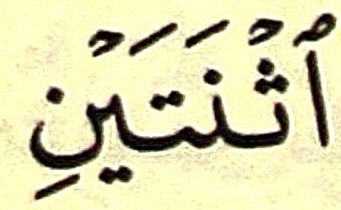 ٱثْنَتَيْنِ